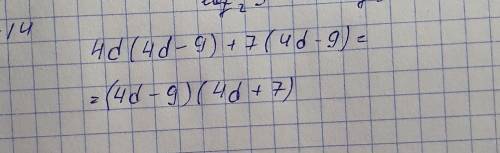 14
4d(4d-9)+7(4d-9)=
=(4d-9)(4d+7)